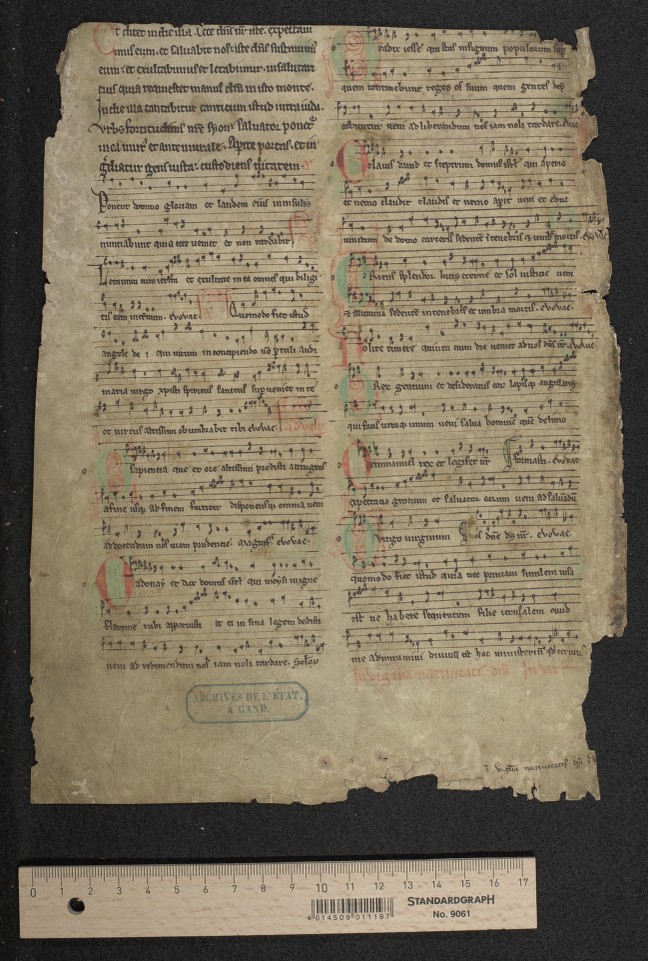 et dicet in die illa. Ecce dns nr iste. expectavi
mus eum. et saluabit nos. iste dns sustinuim
eum. et exultabimus et letabimur. in salutari
eius quia requiescet manus dni in isto monte.
In die illa cantabitur canticum istud in terra iuda.
Urbs fortitudinis nre syon. saluator ponet
in ea mur et ante murale. Apite portas. et in
grediatur gens iusta. custodiens ueritatem
Ponent domino gloriam et laudem eius in insulis
nuntiabunt quia ecce veniet et non tardabit
Letamini cum et exultate in ea omnes qui diligi
tis eam in eternum. evovae. Quomodo fiet istud
angele dei quia uirum in concipiendo non audi
maria uirgo xpisti spiritus sanctus supueniet in te
et uirtus altissimi obumbrabit tibi evovae.
O sapientia que ex ore altissimi prodisti attingens
a fine usq ad finem fortiter disponensq omnia ueni
ad docendum nos uiam prudentie. Magnif. evovae.
O adonay et dux domus isrl qui moysi in igne
flamme rubi apparuisti et ei in sina legem dedisti
ueni ad redimendum nos iam noli tardare.
O radix iesse qui stas in signum populorum sup
quem continebunt reges os suum quem gentes dep
cabuntur ueni ad liberandum nos iam noli tardare. evovae
O clauis dauid et sceptrum domus isrl qui aperis
et nemo claudit claudis et nemo aperit ueni et educ
uinctum de domo carceris sedente i tenebris & umb mortis. evovae
O oriens splendor lucis eterne et sol iusticie ueni
& illumina sedentes in tenebris et umbra mortis. evovae.
Nolite timere quinta enim die ueniet ad uos dns nr. evovae
O Rex gentium et desideratus eor lapisq angularis
qui facis utraq unum ueni salua hominem que de limo
O emmanuel rex et legifer nr formasti. evovae
expectatio gentium et saluator earum ueni ad saluandu
O virgo uirginum nos dne ds nr. evovae.
quomodo fiet istud quia nec primam similem uisa
est nec habere sequentem filie ierusalem quid
me admiramini diuinu est hoc misterium qd cernitis
In vigilia natiuitatis dni
ARCHIVES DE L'ÉTAT.
À GAND.
vigilia natiuitatis dni
0 1 2 3 4 5 6 7 8 9 10 11 12 13 14 15 16 17
4 014509 011197
STANDARDGRAPH
No. 9061